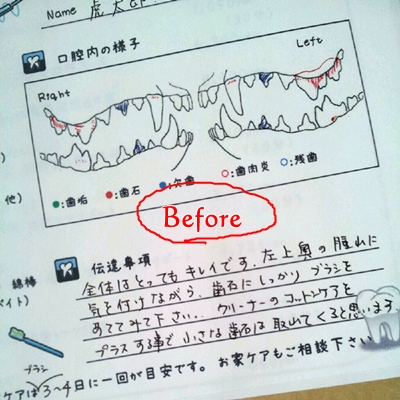 Name 虎太
口腔内の様子
Right
Left
他)
●:歯垢 ●:歯石 ●:欠歯 ○:歯肉炎 ○:残歯
Before
綿棒
伝達事項
全体はとってもキレイです。左上奥の腫れに
気を付けながら、歯石にしっかりブラシを
あててみて下さい。クリーナーのコットンケアを
プラスする事で小さな歯石は取れてくると思います
ブラシ
ケアは3~4日に一回が目安です。お家ケアもご相談下さい